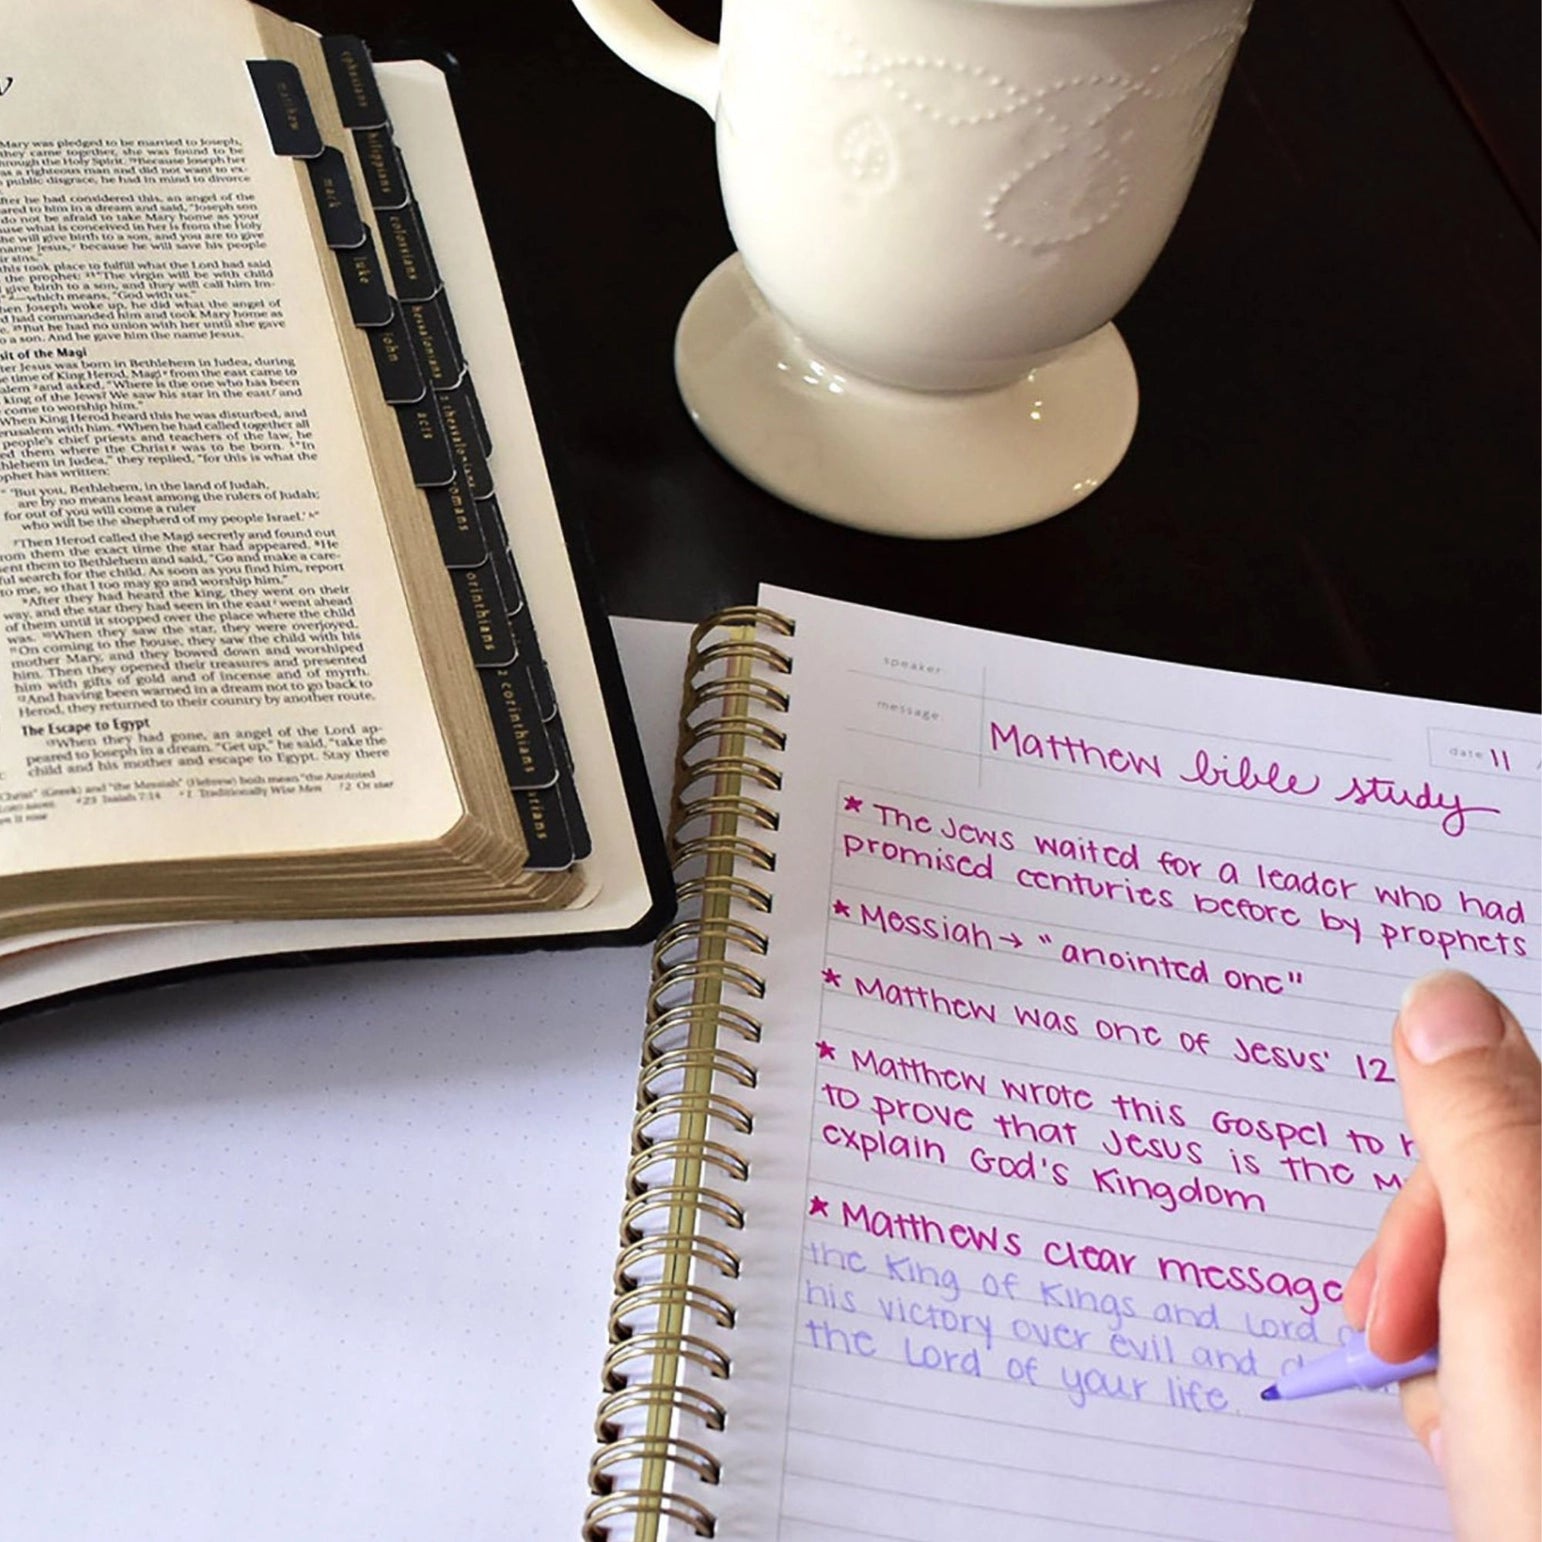 Mary was pledged to be married to Joseph,
they came together, she was found to be
through the Holy Spirit. 19Because Joseph her
as a righteous man and did not want to ex-
public disgrace, he had in mind to divorce
after he had considered this, an angel of the
to him in a dream and said, "Joseph son
do not be afraid to take Mary home as your
what is conceived in her is from the Holy
he will give birth to a son, and you are to give
name Jesus, because he will save his people
sins."
this took place to fulfill what the Lord had said
the prophet: 23"The virgin will be with child
give birth to a son, and they will call him Im-
—which means, "God with us."
Joseph woke up, he did what the angel of
had commanded him and took Mary home as
25But he had no union with her until she gave
to a son. And he gave him the name Jesus.
of the Magi
Jesus was born in Bethlehem in Judea, during
time of King Herod, Magi from the east came to
2and asked, "Where is the one who has been
king of the Jews? We saw his star in the east and
come to worship him."
When King Herod heard this he was disturbed, and
with him. 4When he had called together all
people's chief priests and teachers of the law, he
them where the Christ was to be born. 5"In
in Judea," they replied, "for this is what the
has written:
6"'But you, Bethlehem, in the land of Judah,
are by no means least among the rulers of Judah;
for out of you will come a ruler
who will be the shepherd of my people Israel.'"
7Then Herod called the Magi secretly and found out
from them the exact time the star had appeared. 8He
sent them to Bethlehem and said, "Go and make a care-
ful search for the child. As soon as you find him, report
to me, so that I too may go and worship him."
9After they had heard the king, they went on their
way, and the star they had seen in the east went ahead
of them until it stopped over the place where the child
was. 10When they saw the star, they were overjoyed.
11On coming to the house, they saw the child with his
mother Mary, and they bowed down and worshiped
him. Then they opened their treasures and presented
him with gifts of gold and of incense and of myrrh.
12And having been warned in a dream not to go back to
Herod, they returned to their country by another route.
The Escape to Egypt
13When they had gone, an angel of the Lord ap-
peared to Joseph in a dream. "Get up," he said, "take the
child and his mother and escape to Egypt. Stay there
(Greek) and "the Messiah" (Hebrew) both mean "the Anointed
23 Isaiah 7:14 1 Traditionally Wise Men 2 Or star
matthew
mark
luke
john
acts
2 corinthians
ephesians
colossians
2 thessalonians
speaker
message
date 11
Matthew bible study
★ The Jews waited for a leader who had
promised centuries before by prophets
★ Messiah → "anointed one"
★ Matthew was one of Jesus' 12
★ Matthew wrote this Gospel to
to prove that Jesus is the
explain God's Kingdom
★ Matthews clear message
the King of Kings and Lord
his victory over evil and
the Lord of your life.